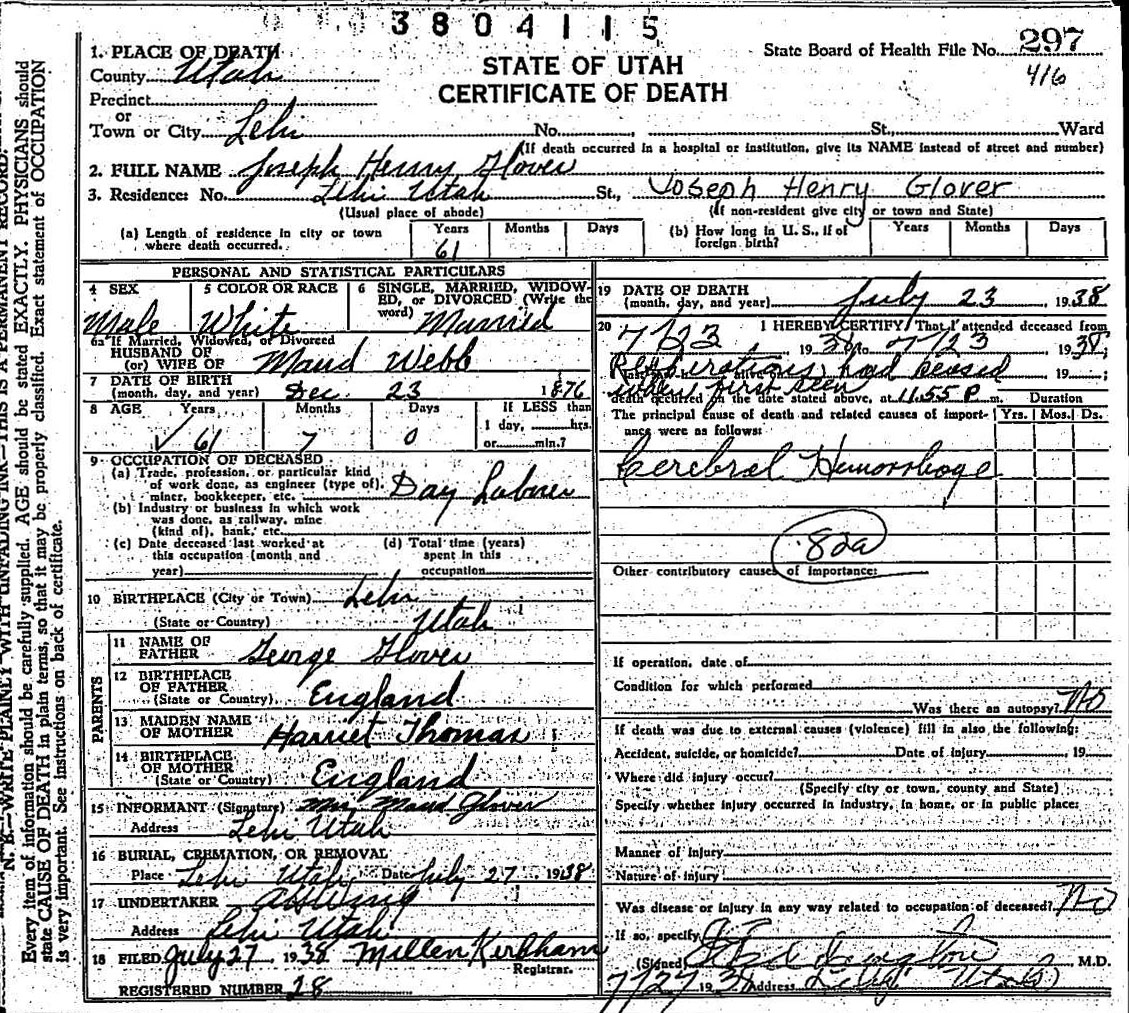 3804115
1. PLACE OF DEATH
State Board of Health File No. 297
County Utah
STATE OF UTAH
416
Precinct
CERTIFICATE OF DEATH
or
Town or City Lehi No. , St., Ward
(If death occurred in a hospital or institution, give its NAME instead of street and number)
2. FULL NAME Joseph Henry Glover
3. Residence: No. Lehi Utah St., Joseph Henry Glover
(Usual place of abode) (If non-resident give city or town and State)
(a) Length of residence in city or town where death occurred. Years 61 Months Days
(b) How long in U. S., if of foreign birth? Years Months Days
PERSONAL AND STATISTICAL PARTICULARS
4 SEX Male
5 COLOR OR RACE White
6 SINGLE, MARRIED, WIDOWED, or DIVORCED (Write the word) Married
6a If Married, Widowed, or Divorced
HUSBAND OF
(or) WIFE OF Maud Webb
7 DATE OF BIRTH
(month, day, and year) Dec. 23 1876
8 AGE Years 61 Months 7 Days 0
If LESS than
1 day, hrs.
or min.?
9 OCCUPATION OF DECEASED
(a) Trade, profession, or particular kind
of work done, as engineer (type of),
miner, bookkeeper, etc. Day Laborer
(b) Industry or business in which work
was done, as railway, mine
(kind of), bank, etc.
(c) Date deceased last worked at
this occupation (month and
year)
(d) Total time (years)
spent in this
occupation
10 BIRTHPLACE (City or Town) Lehi
(State or Country) Utah
PARENTS
11 NAME OF
FATHER George Glover
12 BIRTHPLACE
OF FATHER
(State or Country) England
13 MAIDEN NAME
OF MOTHER Harriet Thomas
14 BIRTHPLACE
OF MOTHER
(State or Country) England
15 INFORMANT (Signature) Mrs. Maud Glover
Address Lehi Utah
16 BURIAL, CREMATION, OR REMOVAL
Place Lehi Utah Date July 27 1938
17 UNDERTAKER Wing
Address Lehi Utah
18 FILED July 27 1938 Kirkham
Registrar.
REGISTERED NUMBER 28
19 DATE OF DEATH
(month, day, and year) July 23 1938
20 I HEREBY CERTIFY That I attended deceased from
7/23 1938 to 7/23 1938;
Respirations had ceased 19 ;
when first seen
death occurred on the date stated above, at 11.55 P m. Duration
The principal cause of death and related causes of importance were as follows: Yrs. Mos. Ds.
Cerebral Hemorrhage
82a
Other contributory causes of importance:
If operation, date of
Condition for which performed
Was there an autopsy? No
If death was due to external causes (violence) fill in also the following:
Accident, suicide, or homicide? Date of injury 19
Where did injury occur?
(Specify city or town, county and State)
Specify whether injury occurred in industry, in home, or in public place:
Manner of injury
Nature of injury
Was disease or injury in any way related to occupation of deceased? No
If so, specify
(Signed) M.D.
7/27 1938 Address Lehi Utah
N. B.—WRITE PLAINLY WITH UNFADING INK—THIS IS A PERMANENT RECORD.
Every item of information should be carefully supplied. AGE should be stated EXACTLY. PHYSICIANS should
state CAUSE OF DEATH in plain terms, so that it may be properly classified. Exact statement of OCCUPATION
is very important. See Instructions on back of certificate.